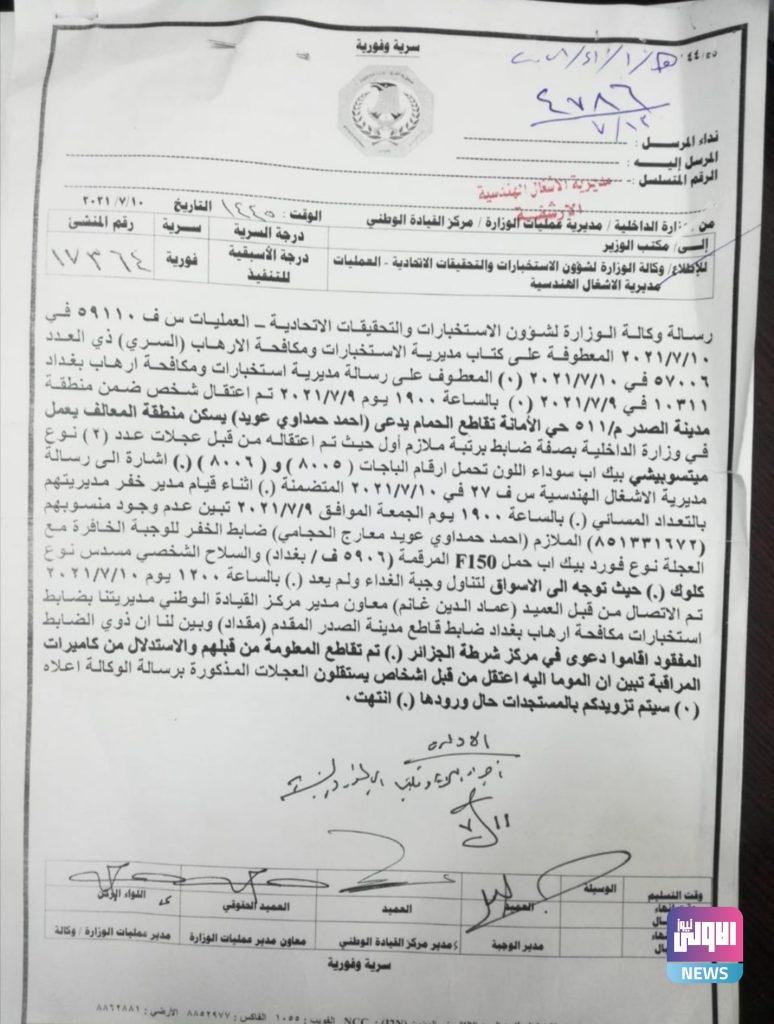 سرية وفورية
٤٧٨٦
٧/١٢
نداء المرسل :
المرسل إليه :
الرقم المتسلسل :
مديرية الاشغال الهندسية
الارشفة
من / وزارة الداخلية / مديرية عمليات الوزارة / مركز القيادة الوطني
الوقت : ١٤٤٥
التاريخ
٢٠٢١/٧/١٠
إلى/ مكتب الوزير
درجة السرية
سرية
رقم المنشئ
للإطلاع/ وكالة الوزارة لشؤون الاستخبارات والتحقيقات الاتحادية - العمليات
مديرية الاشغال الهندسية
درجة الأسبقية
للتنفيذ
فورية
١٧٣٦٤
رسالة وكالة الوزارة لشؤون الاستخبارات والتحقيقات الاتحادية – العمليات س ف ٥٩١١٠ في
٢٠٢١/٧/١٠ المعطوفة على كتاب مديرية الاستخبارات ومكافحة الارهاب (السري) ذي العدد
٥٧٠٠٦ في ٢٠٢١/٧/١٠ (٠) المعطوف على رسالة مديرية استخبارات ومكافحة ارهاب بغداد
١٠٣١١ في ٢٠٢١/٧/٩ (٠) بالساعة ١٩٠٠ يوم ٢٠٢١/٧/٩ تم اعتقال شخص ضمن منطقة
مدينة الصدر م/٥١١ حي الأمانة تقاطع الحمام يدعى (احمد حمداوي عويد) يسكن منطقة المعالف يعمل
في وزارة الداخلية بصفة ضابط برتبة ملازم أول حيث تم اعتقاله من قبل عجلات عدد (٢) نوع
ميتسوبيشي بيك اب سوداء اللون تحمل ارقام الباجات (٨٠٠٥) و (٨٠٠٦) (.) اشارة الى رسالة
مديرية الاشغال الهندسية س ف ٢٧ في ٢٠٢١/٧/١٠ المتضمنة (.) اثناء قيام مدير خفر مديريتهم
بالتعداد المسائي (.) بالساعة ١٩٠٠ يوم الجمعة الموافق ٢٠٢١/٧/٩ تبين عدم وجود منسوبهم
(٨٥١٣٣١٦٧٢) الملازم (احمد حمداوي عويد معارج الحجامي) ضابط الخفر للوجبة الخافرة مع
العجلة نوع فورد بيك اب حمل F150 المرقمة (٥٩٠٦ ف/ بغداد) والسلاح الشخصي مسدس نوع
كلوك (.) حيث توجه الى الاسواق لتناول وجبة الغداء ولم يعد (.) بالساعة ١٢٠٠ يوم ٢٠٢١/٧/١٠
تم الاتصال من قبل العميد (عماد الدين غانم) معاون مدير مركز القيادة الوطني مديريتنا بضابط
استخبارات مكافحة ارهاب بغداد ضابط قاطع مدينة الصدر المقدم (مقداد) وبين لنا ان ذوي الضابط
المفقود اقاموا دعوى في مركز شرطة الجزائر (.) تم تقاطع المعلومة من قبلهم والاستدلال من كاميرات
المراقبة تبين ان الموما اليه اعتقل من قبل اشخاص يستقلون العجلات المذكورة برسالة الوكالة اعلاه
(٠) سيتم تزويدكم بالمستجدات حال ورودها (.) انتهت٠
٧/١١
وقت التسليم
الوسيلة
العميد
العميد
العميد الحقوقي
اللواء الركن
مدير الوجبة
مدير مركز القيادة الوطني
معاون مدير عمليات الوزارة
مدير عمليات الوزارة / وكالة
سرية وفورية
الفاكس : ٨٨٥٢٩٧٧ الأرضي : ٨٨٦٢٨٨١
الاولى نيوز
NEWS